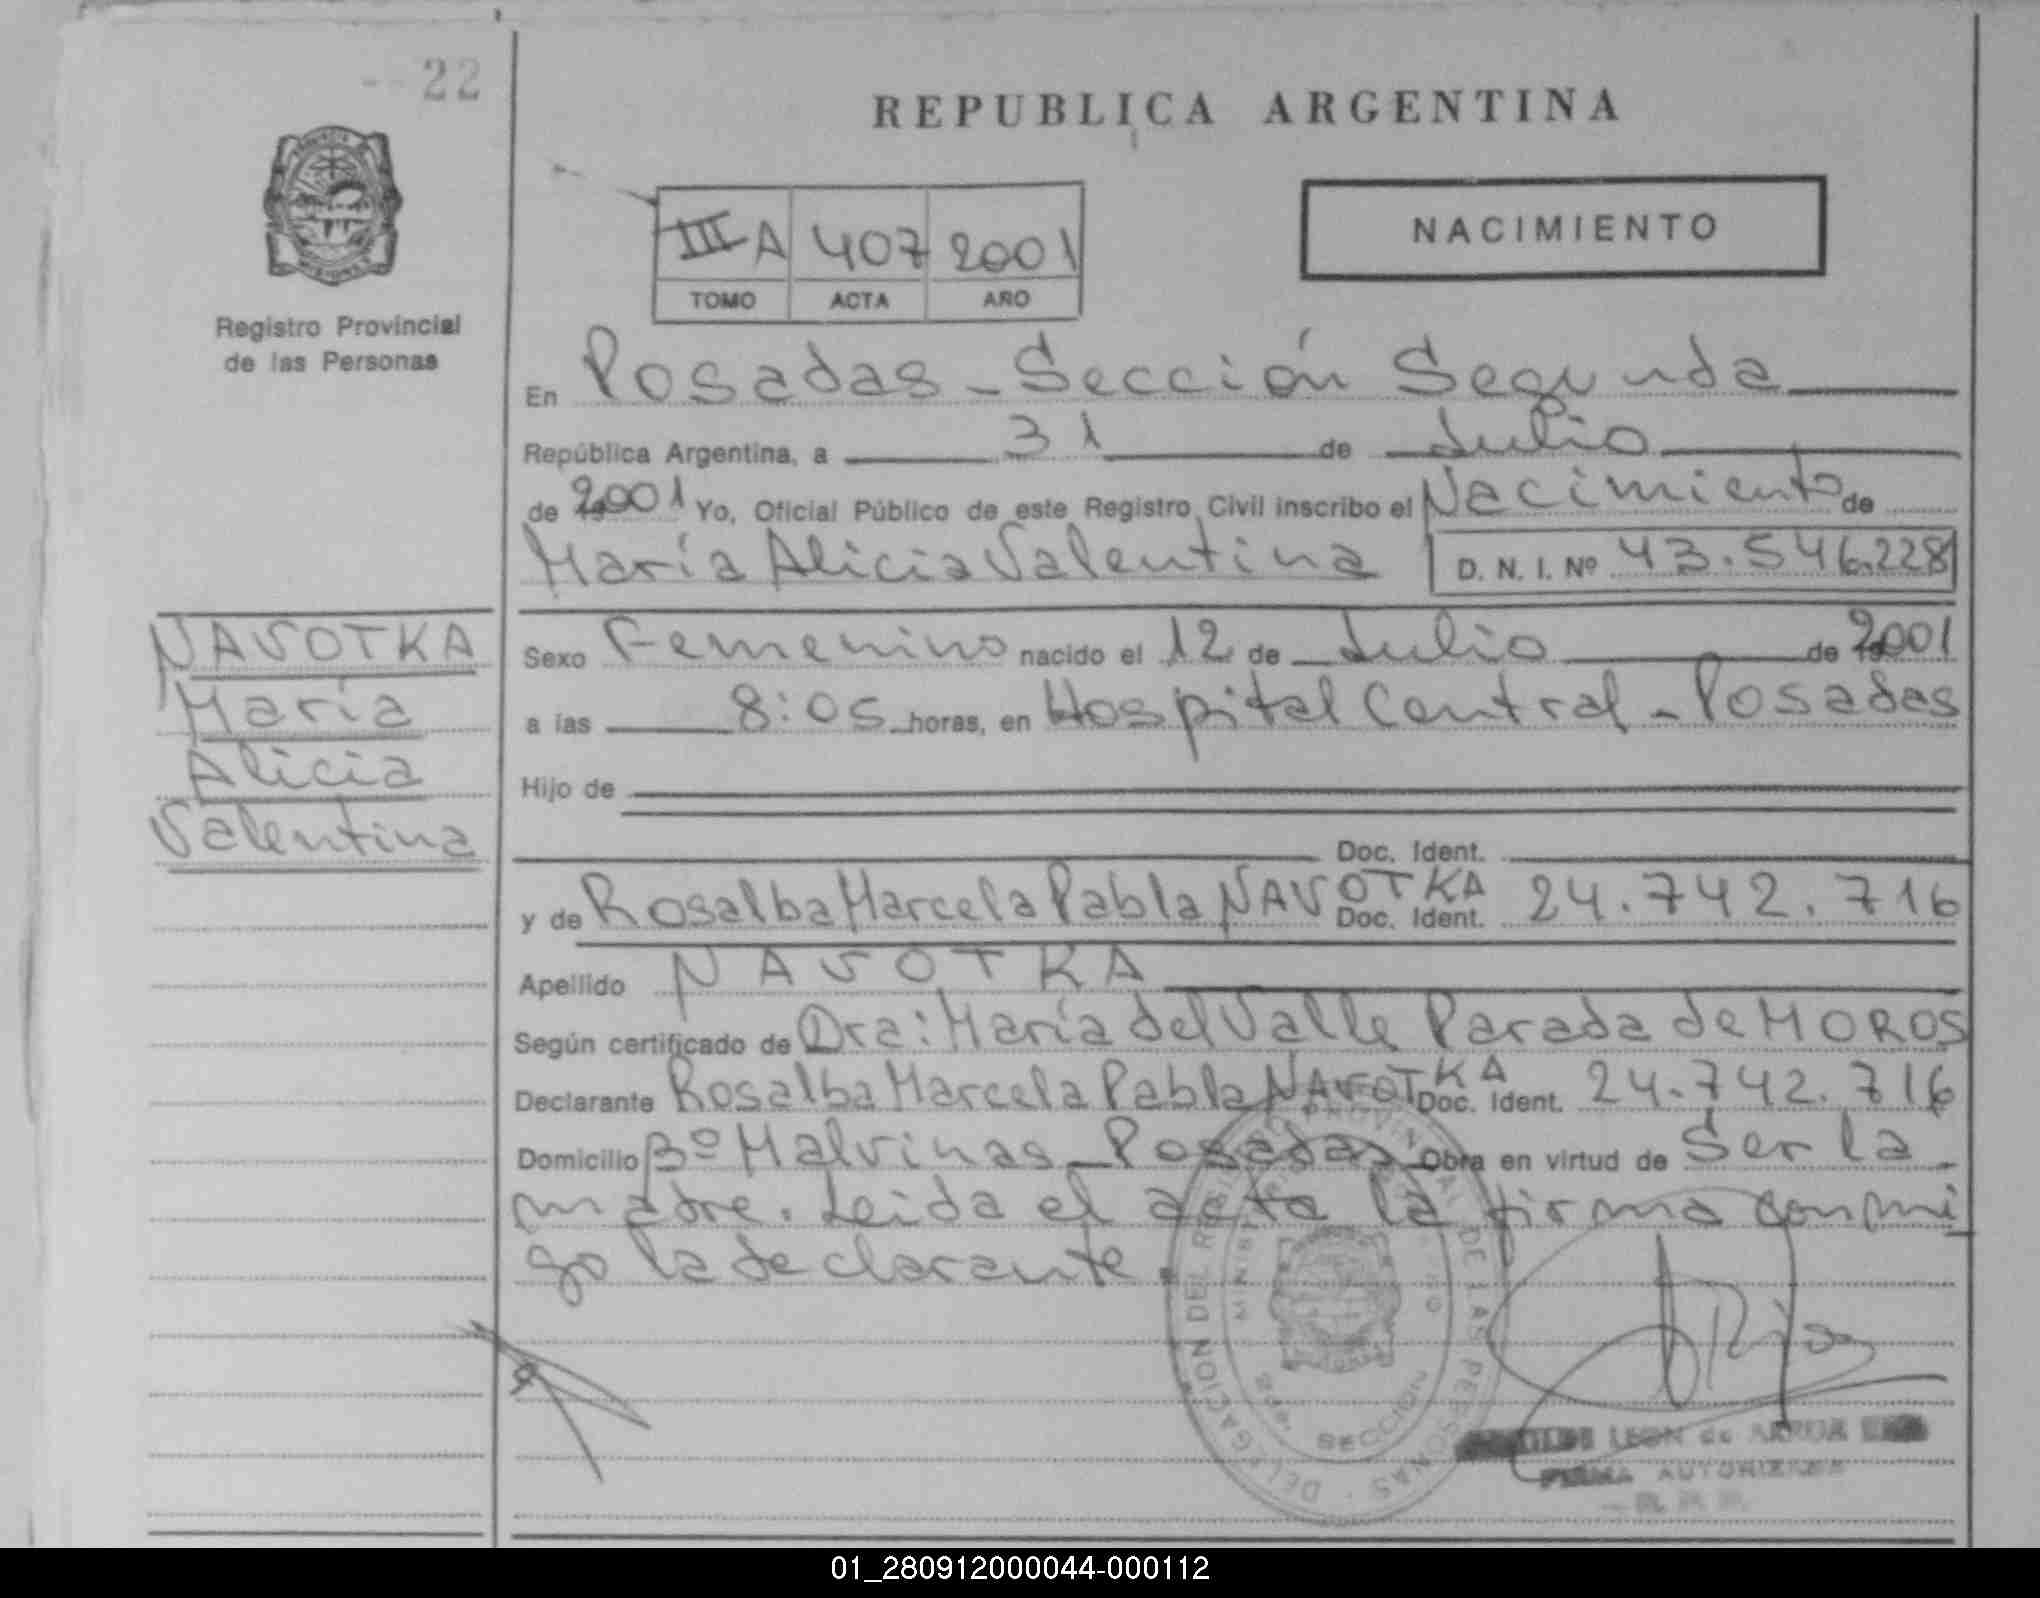 22
REPUBLICA ARGENTINA
III A 407 2001
TOMO ACTA AÑO
NACIMIENTO
Registro Provincial
de las Personas
En Posadas - Sección Segunda
República Argentina, a 31 de Julio
de 2001 Yo, Oficial Público de este Registro Civil inscribo el Nacimiento de
María Alicia Valentina D. N. I. Nº 43.546.228
NAVOTKA
María
Alicia
Valentina
Sexo Femenino nacido el 12 de Julio de 2001
a las 8:05 horas, en Hospital Central - Posadas
Hijo de
Doc. Ident.
y de Rosalba Marcela Pabla NAVOTKA Doc. Ident. 24.742.716
Apellido NAVOTKA
Según certificado de Dra: María del Valle Parada de MOROS
Declarante Rosalba Marcela Pabla NAVOTKA Doc. Ident. 24.742.716
Domicilio Bº Malvinas - Posadas Obra en virtud de Ser la
madre. Leida el acta la firma conmi
go la declarante.
DELEGACION DEL REGISTRO PROVINCIAL DE LAS PERSONAS
SECCION
LEON de
FIRMA AUTORIZADA
01_280912000044-000112